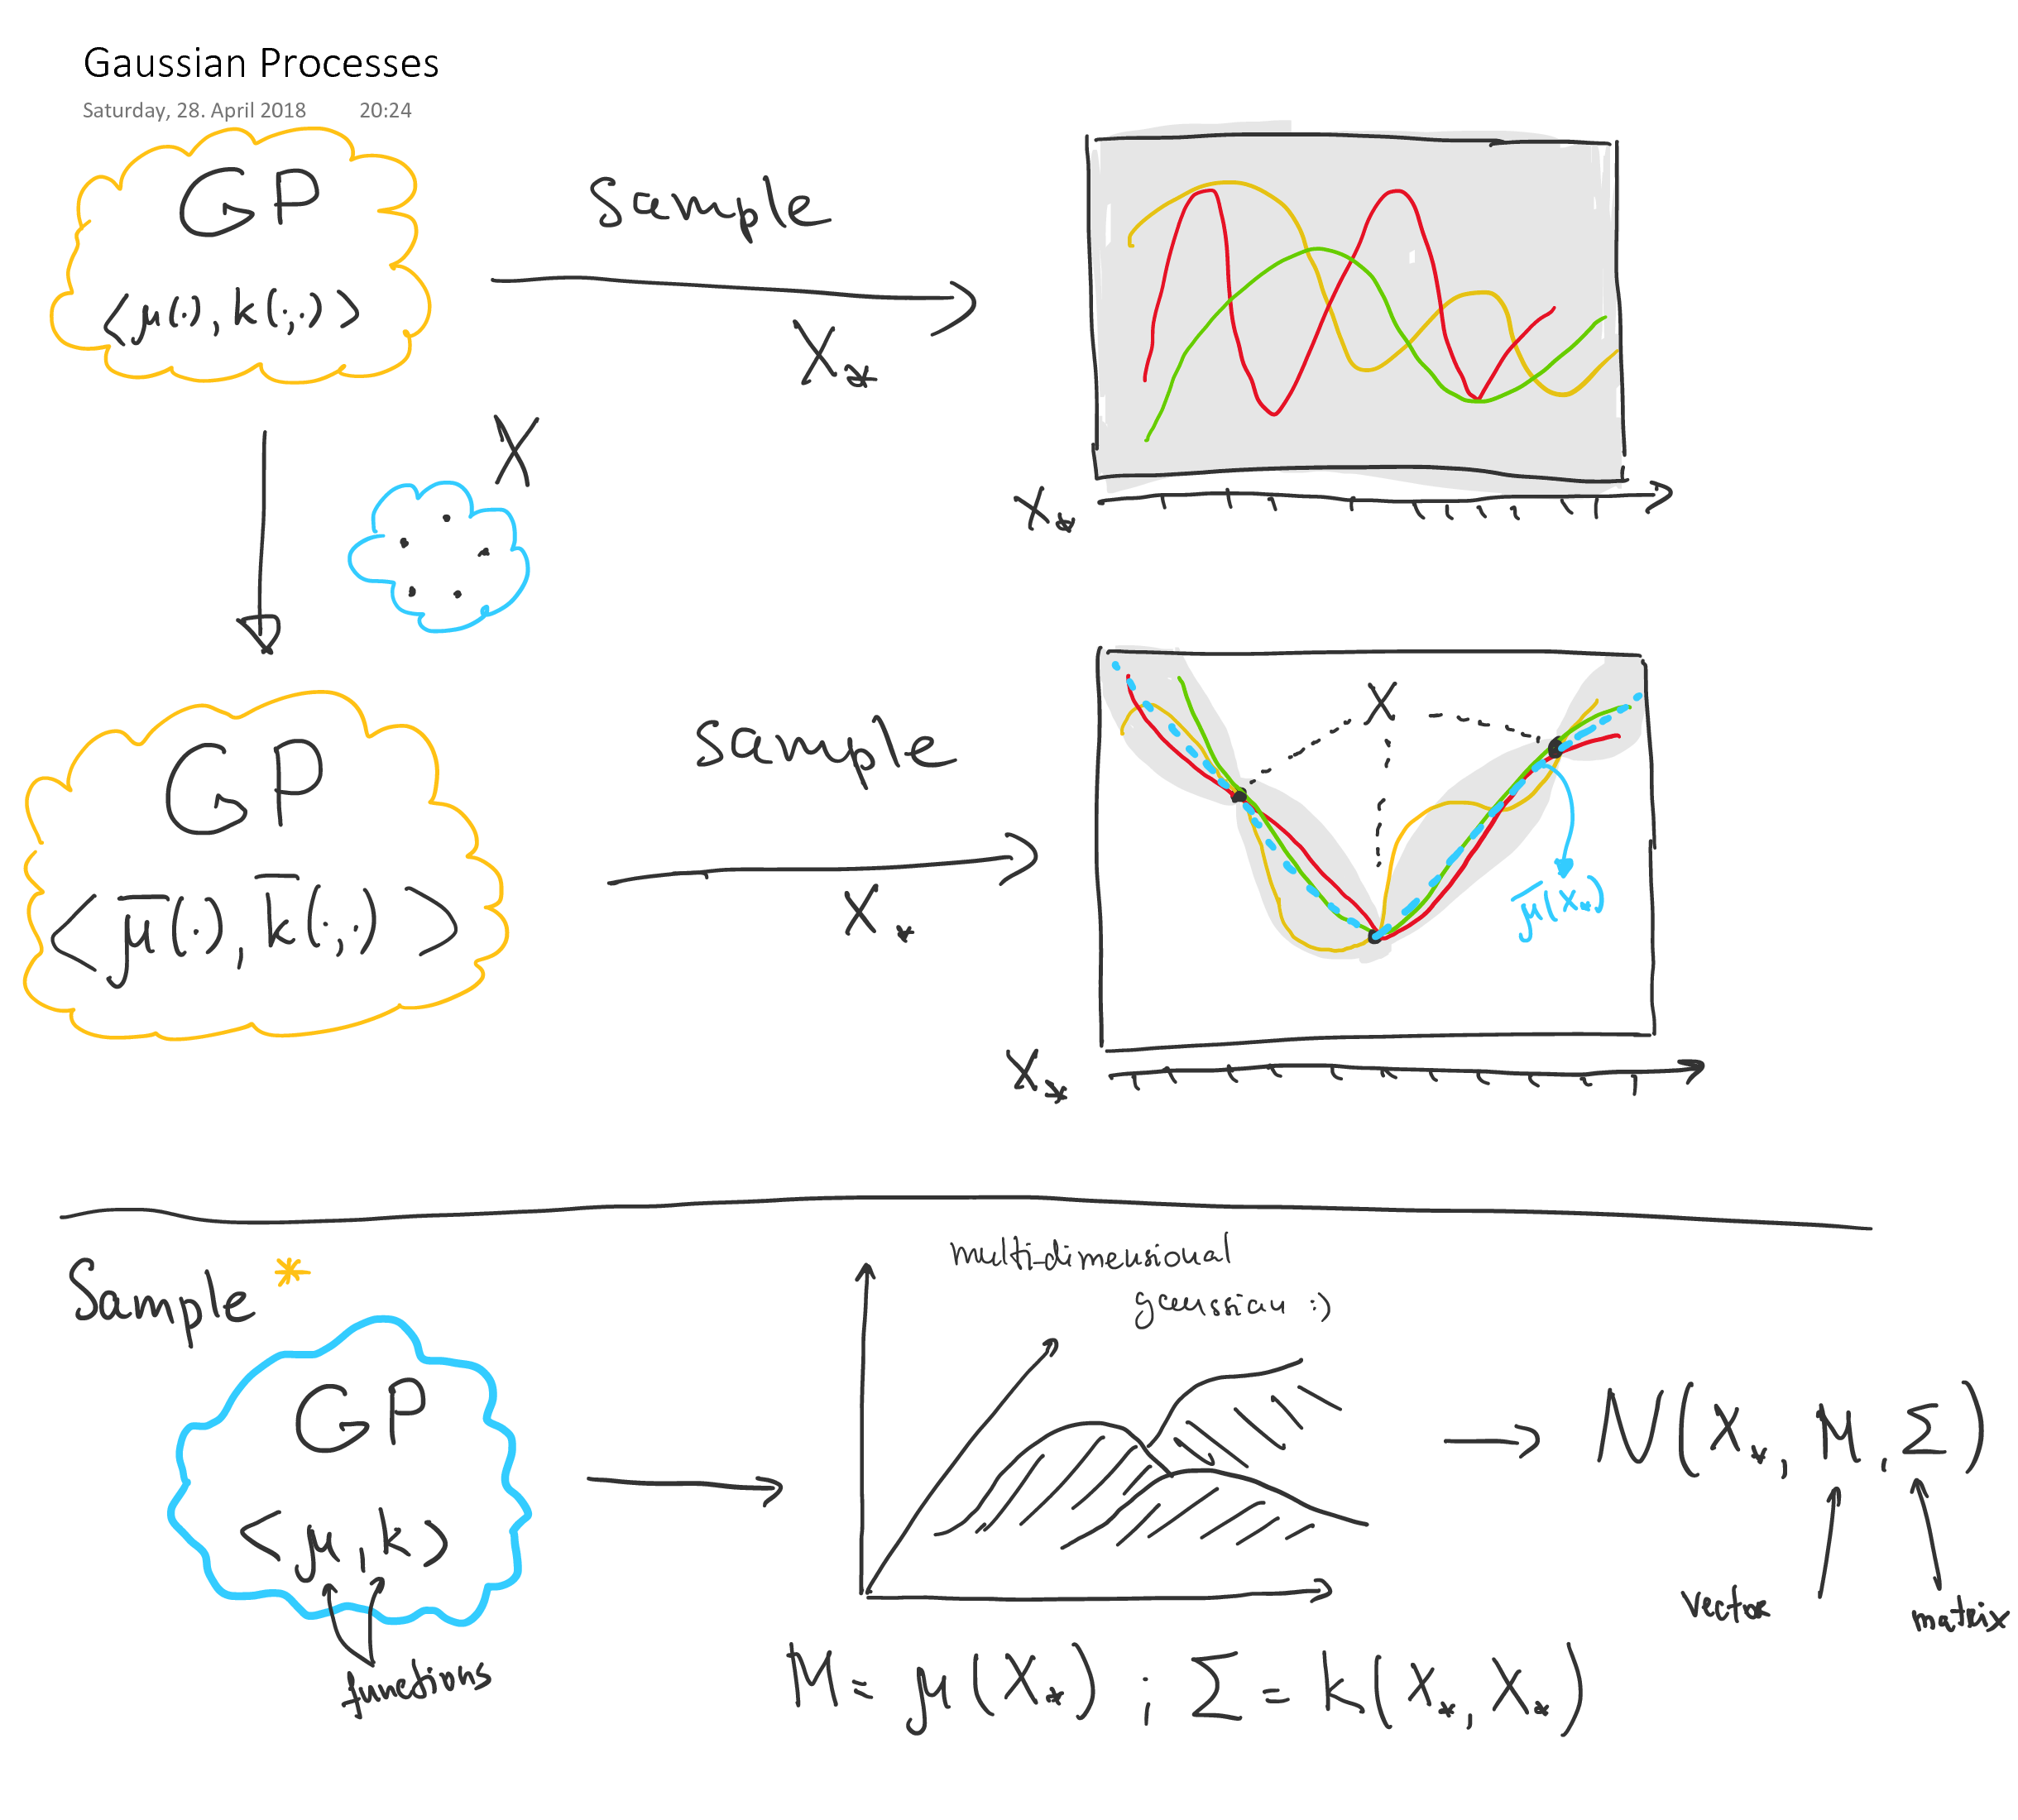 Gaussian Processes
Saturday, 28. April 2018 20:24
GP
<μ(·), k(·,·)>
sample
X*
X*
X
GP
<μ̅(·), k̅(·,·)>
sample
X*
X
μ̅(X*)
X*
Sample *
GP
<μ, k>
functions
multi-dimensional
gaussian :)
N(X*, M, Σ)
vector
matrix
M = μ(X*) ; Σ = k(X*, X*)